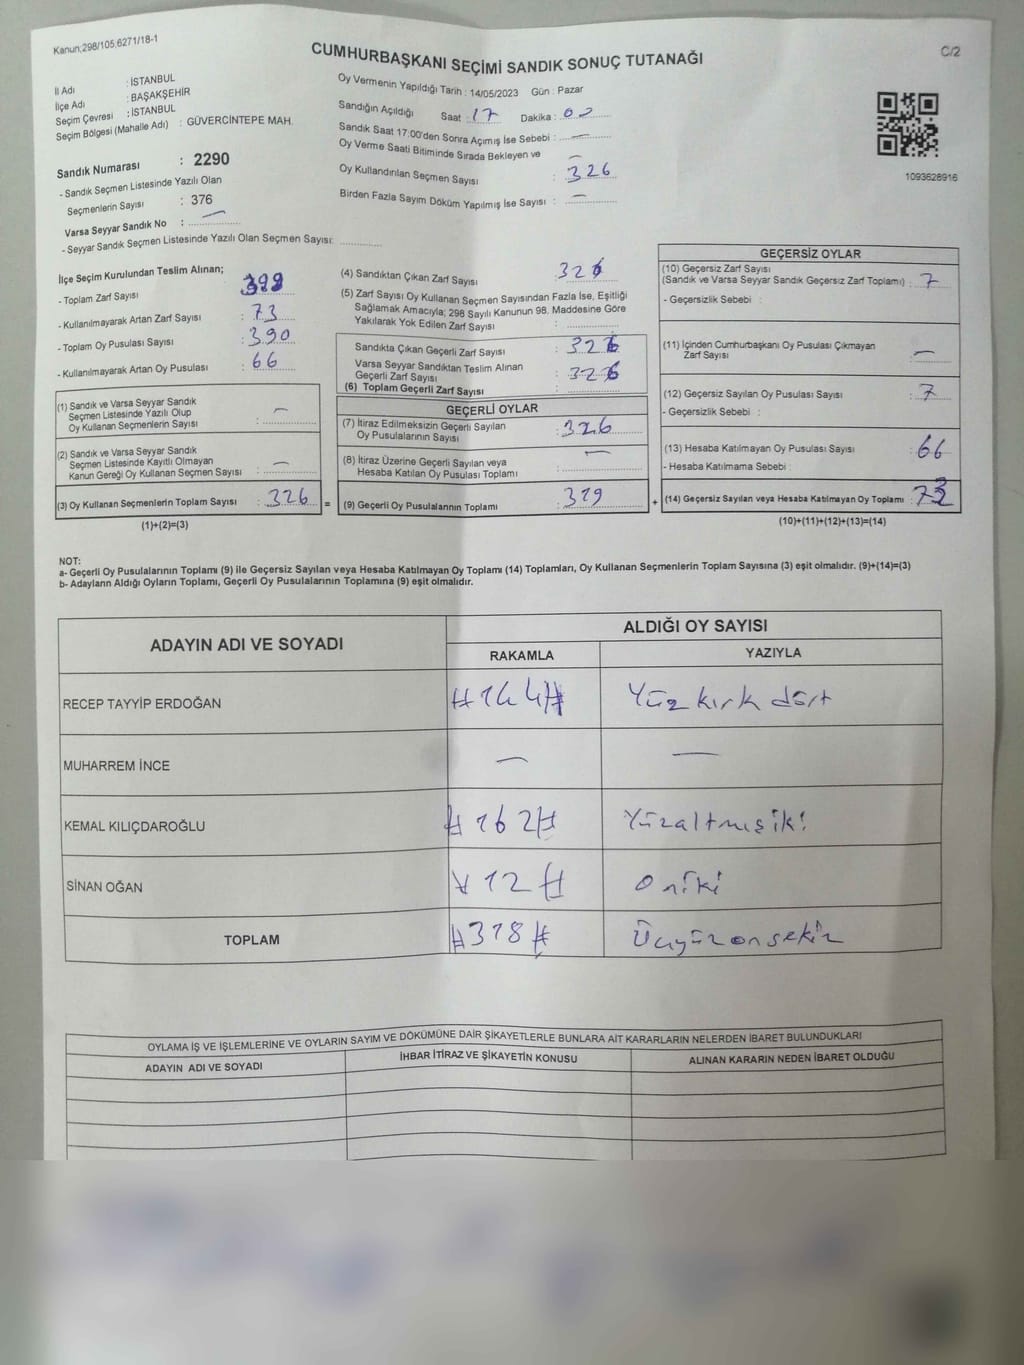 Kanun;298/105;6271/18-1
CUMHURBAŞKANI SEÇİMİ SANDIK SONUÇ TUTANAĞI
C/2
İl Adı : İSTANBUL
İlçe Adı : BAŞAKŞEHİR
Seçim Çevresi : İSTANBUL
Seçim Bölgesi (Mahalle Adı) : GÜVERCİNTEPE MAH.
Sandık Numarası : 2290
- Sandık Seçmen Listesinde Yazılı Olan
Seçmenlerin Sayısı : 376
Varsa Seyyar Sandık No : —
- Seyyar Sandık Seçmen Listesinde Yazılı Olan Seçmen Sayısı:
Oy Vermenin Yapıldığı Tarih : 14/05/2023 Gün : Pazar
Sandığın Açıldığı Saat : 17 Dakika :
Sandık Saat 17:00'den Sonra Açımış İse Sebebi : —
Oy Verme Saati Bitiminde Sırada Bekleyen ve —
Oy Kullandırılan Seçmen Sayısı : 326
Birden Fazla Sayım Döküm Yapılmış İse Sayısı : —
1093628916
İlçe Seçim Kurulundan Teslim Alınan;
- Toplam Zarf Sayısı :
- Kullanılmayarak Artan Zarf Sayısı : 73
- Toplam Oy Pusulası Sayısı : 390
- Kullanılmayarak Artan Oy Pusulası : 66
(1) Sandık ve Varsa Seyyar Sandık
Seçmen Listesinde Yazılı Olup
Oy Kullanan Seçmenlerin Sayısı : —
(2) Sandık ve Varsa Seyyar Sandık
Seçmen Listesinde Kayıtlı Olmayan
Kanun Gereği Oy Kullanan Seçmen Sayısı : —
(3) Oy Kullanan Seçmenlerin Toplam Sayısı : 326 =
(1)+(2)=(3)
(4) Sandıktan Çıkan Zarf Sayısı : 326
(5) Zarf Sayısı Oy Kullanan Seçmen Sayısından Fazla İse, Eşitliği
Sağlamak Amacıyla; 298 Sayılı Kanunun 98. Maddesine Göre
Yakılarak Yok Edilen Zarf Sayısı :
Sandıkta Çıkan Geçerli Zarf Sayısı : 326
Varsa Seyyar Sandıktan Teslim Alınan
Geçerli Zarf Sayısı : 326
(6) Toplam Geçerli Zarf Sayısı :
GEÇERLİ OYLAR
(7) İtiraz Edilmeksizin Geçerli Sayılan
Oy Pusulalarının Sayısı : 326
(8) İtiraz Üzerine Geçerli Sayılan veya —
Hesaba Katılan Oy Pusulası Toplamı :
(9) Geçerli Oy Pusulalarının Toplamı : 319 +
GEÇERSİZ OYLAR
(10) Geçersiz Zarf Sayısı
(Sandık ve Varsa Seyyar Sandık Geçersiz Zarf Toplamı) : 7
- Geçersizlik Sebebi :
(11) İçinden Cumhurbaşkanı Oy Pusulası Çıkmayan
Zarf Sayısı : —
(12) Geçersiz Sayılan Oy Pusulası Sayısı : 7
- Geçersizlik Sebebi :
(13) Hesaba Katılmayan Oy Pusulası Sayısı : 66
- Hesaba Katılmama Sebebi :
(14) Geçersiz Sayılan veya Hesaba Katılmayan Oy Toplamı : 73
(10)+(11)+(12)+(13)=(14)
NOT:
a- Geçerli Oy Pusulalarının Toplamı (9) ile Geçersiz Sayılan veya Hesaba Katılmayan Oy Toplamı (14) Toplamları, Oy Kullanan Seçmenlerin Toplam Sayısına (3) eşit olmalıdır. (9)+(14)=(3)
b- Adayların Aldığı Oyların Toplamı, Geçerli Oy Pusulalarının Toplamına (9) eşit olmalıdır.
ADAYIN ADI VE SOYADI ALDIĞI OY SAYISI
RAKAMLA YAZIYLA
RECEP TAYYİP ERDOĞAN #144# Yüz kırk dört
MUHARREM İNCE — —
KEMAL KILIÇDAROĞLU #162# Yüzaltmışiki
SİNAN OĞAN #12# oniki
TOPLAM #318# Üçyüzonsekiz
OYLAMA İŞ VE İŞLEMLERİNE VE OYLARIN SAYIM VE DÖKÜMÜNE DAİR ŞİKAYETLERLE BUNLARA AİT KARARLARIN NELERDEN İBARET BULUNDUKLARI
ADAYIN ADI VE SOYADI İHBAR İTİRAZ VE ŞİKAYETİN KONUSU ALINAN KARARIN NEDEN İBARET OLDUĞU